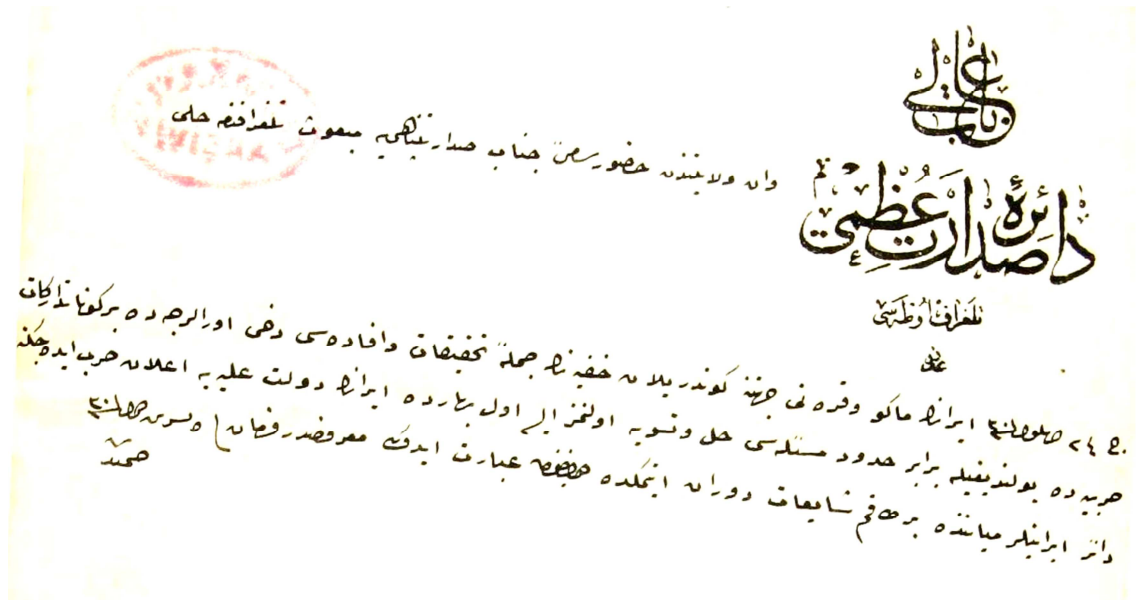 باب عالی
دائرهٔ صدارت عظمی
تلغراف اوطه‌سی
عدد
وان ولایتندن حضور سامئ جناب صدارتپناهی‌یه مبعوث تلغرافنامه حلی
ج ٢٤ ایرانك ماكو وقره نی جهتنه كوندریلان خفیه نك جملهٔ تحقیقات وافاده‌سی دخی اورالرجه ده بركونا تداركات
حربیه ده بولندیغیله برابر حدود مسئله‌سی حل وتسویه اولنمز ایسه اول بهارده ایرانك دولت علیه یه اعلان حرب ایده‌جكنه
دائر ایرانیلر میاننده بر طاقم شایعات دوران ایتمكده عبارت ایدوكی معروضدر فرمان